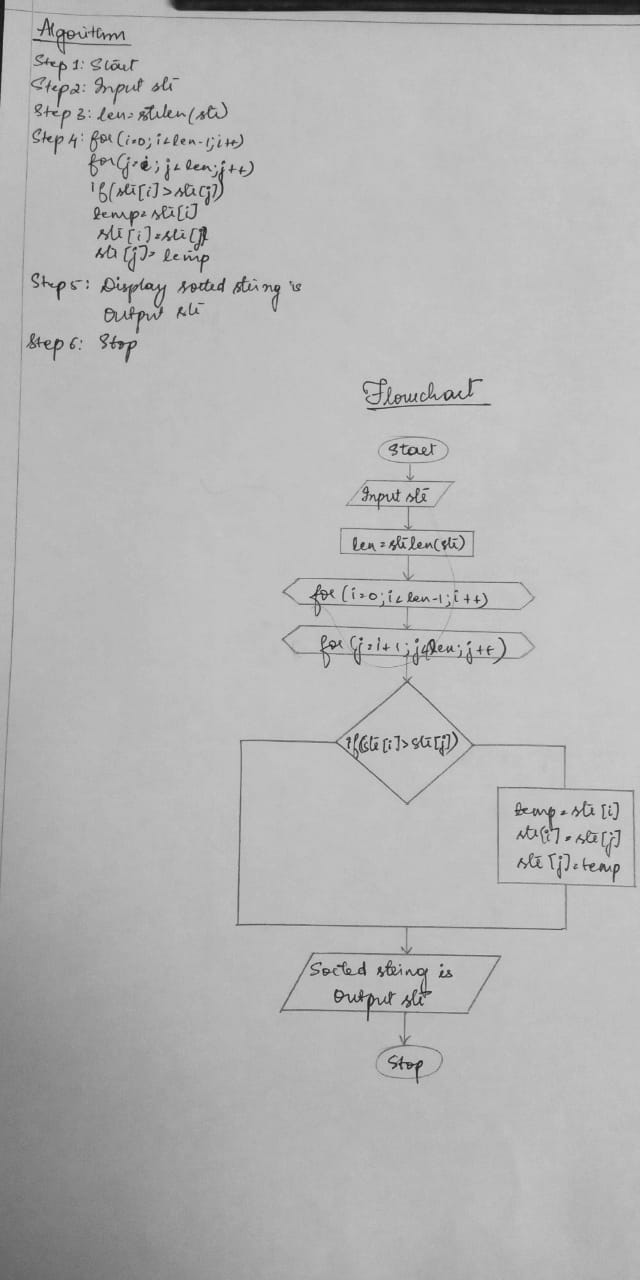 Algorithm
Step 1: Start
Step 2: Input str
Step 3: len=strlen(str)
Step 4: for(i=0;i<len-1;i++)
for(j=i;j<len;j++)
if(str[i]>str[j])
temp=str[i]
str[i]=str[j]
str[j]=temp
Step 5: Display sorted string is
output str
Step 6: Stop
Flowchart
Start
Input str
len=strlen(str)
for(i=0;i<len-1;i++)
for(j=i+1;j<len;j++)
if(str[i]>str[j])
temp=str[i]
str[i]=str[j]
str[j]=temp
Sorted string is
output str
Stop